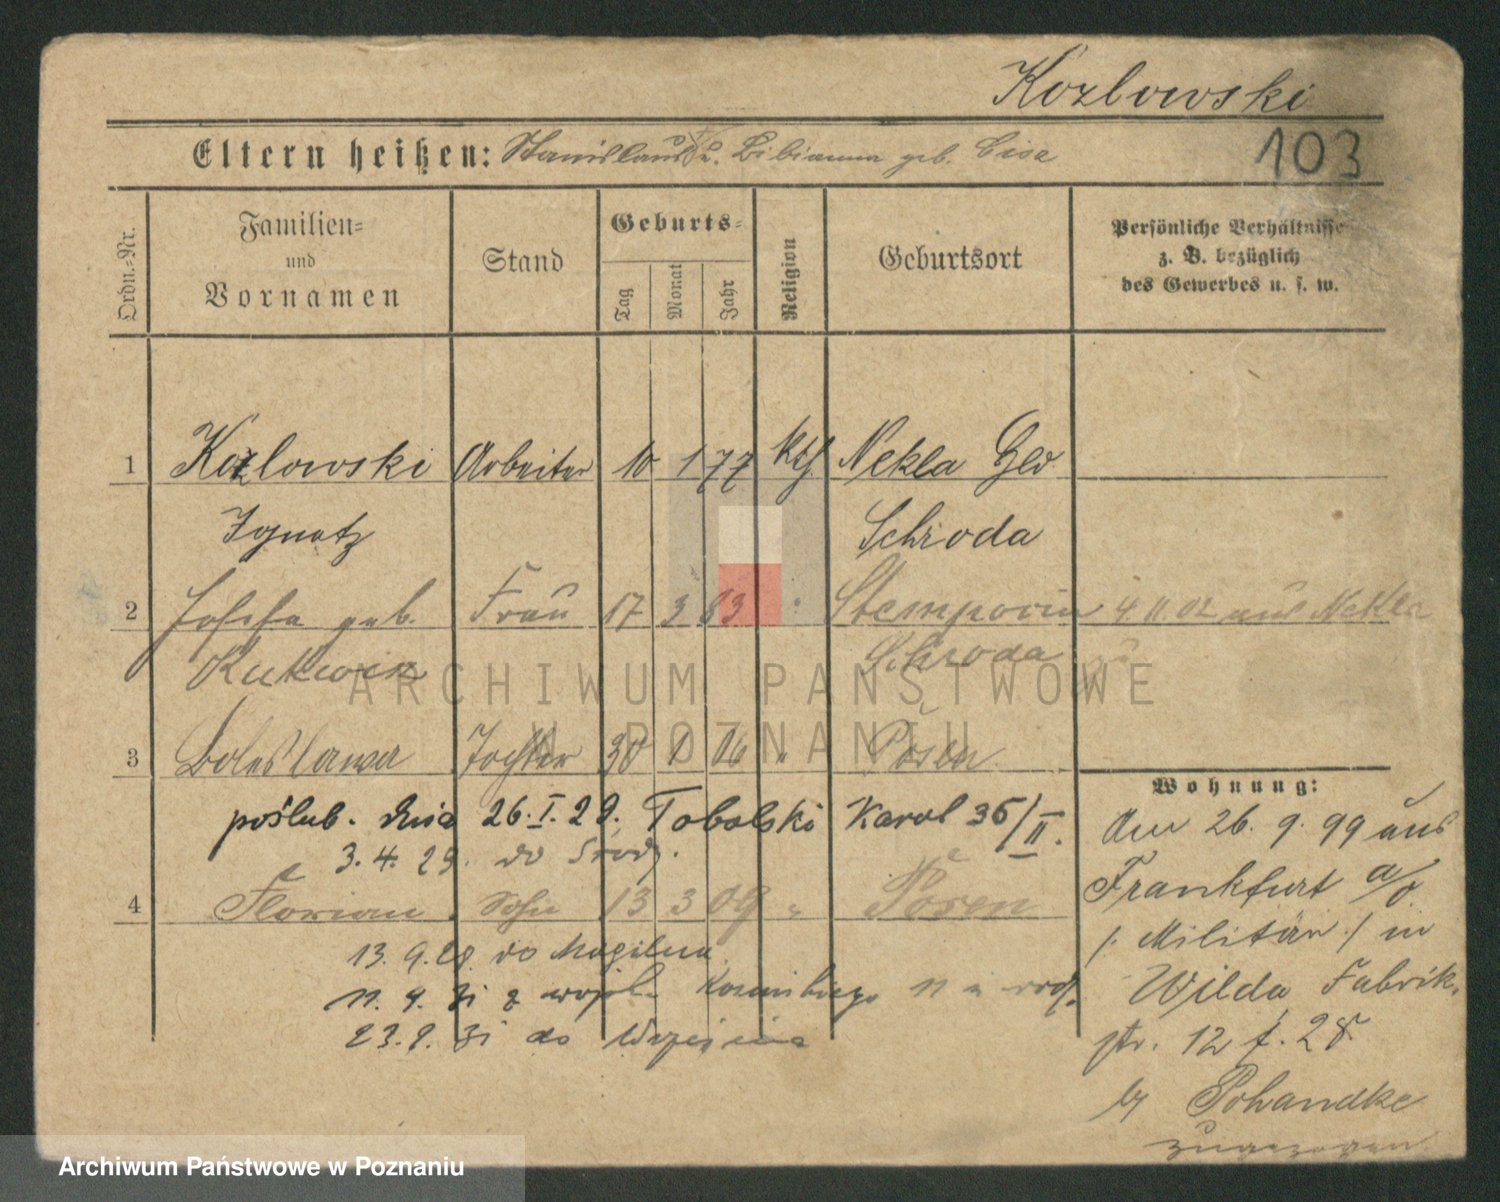 Kozlowski
103
Eltern heißen: Stanislaus u. Bibianna geb. Cisa
Ordn.-Nr.
Familien- und Vornamen
Stand
Geburts-
Tag
Monat
Jahr
Religion
Geburtsort
Persönliche Verhältnisse
z. B. bezüglich
des Gewerbes u. s. w.
1 Kozlowski Arbeiter 10 1 77 kth Nekla
Ignatz Schroda
2 Josefa geb. Frau 17 3 83 Stempocin 4.11.02 aus Nekla
Schroda
3 Boleslawa Tochter 30 1 06 " Posen
poślub. dnia 26.I.29. Tobolski Karol 36/II.
3.4.29. do Środy.
4 Florian Sohn 13 3 09 " Posen
13.9.28. do Mogilna
11.4.31 z wojsk.
23.9.31 do Wrześnie
Wohnung:
Am 26. 9. 99 aus
Frankfurt a/O.
/. Militär ./ in
Wilda, Fabrik-
str. 12 f. 28
by Pohandke
zugezogen
ARCHIWUM PAŃSTWOWE
W POZNANIU
Archiwum Państwowe w Poznaniu